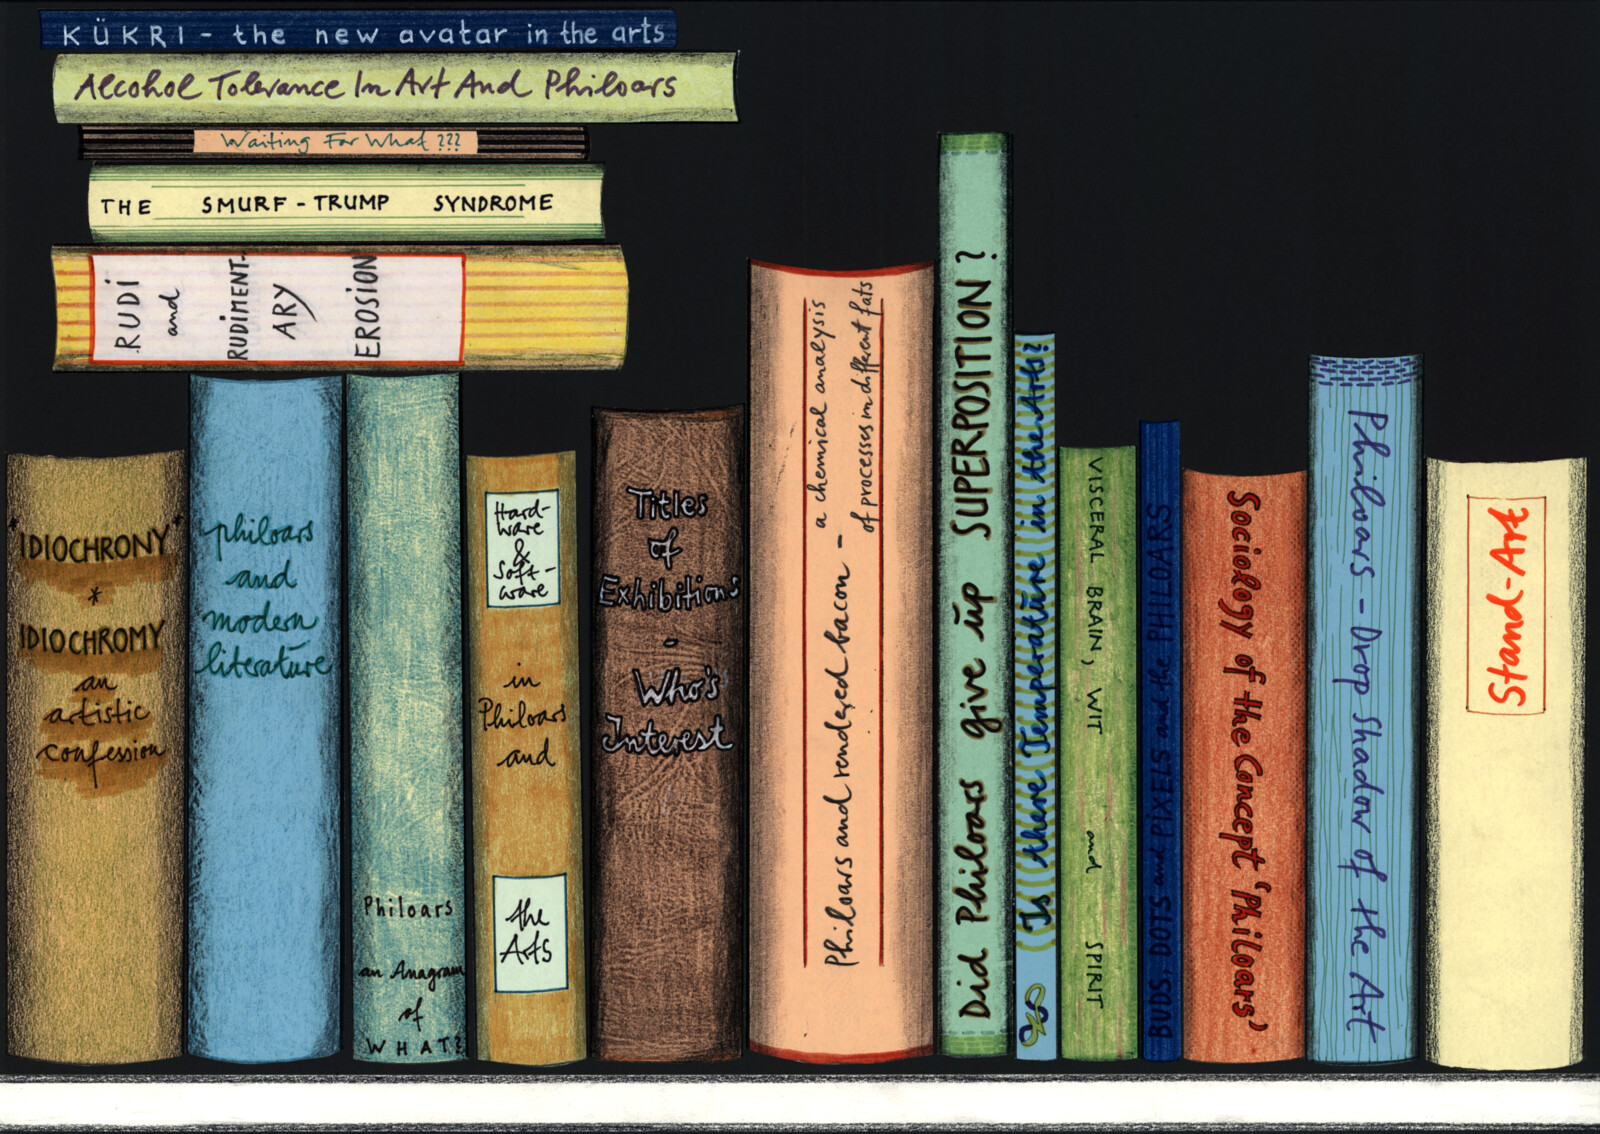 KÜKRI - the new avatar in the arts
Alcohol Tolerance In Art And Philoars
Waiting For What ???
THE SMURF - TRUMP SYNDROME
RUDI
and
RUDIMENT-
ARY
EROSION
*IDIOCHRONY*
*
IDIOCHROMY
an
artistic
confession
philoars
and
modern
literature
Philoars
an Anagram
of
WHAT?
Hard-
ware
&
Soft-
ware
in
Philoars
and
the
Arts
Titles
of
Exhibitions
-
Who's
Interest
Philoars and rendered bacon - a chemical analysis
of processes in different fats
Did Philoars give up SUPERPOSITION ?
(Is there Temperature in the Arts?
VISCERAL BRAIN, WIT and SPIRIT
BUDS, DOTS and PIXELS and the PHILOARS
Sociology of the Concept 'Philoars'
Philoars - Drop Shadow of the Art
Stand-Art